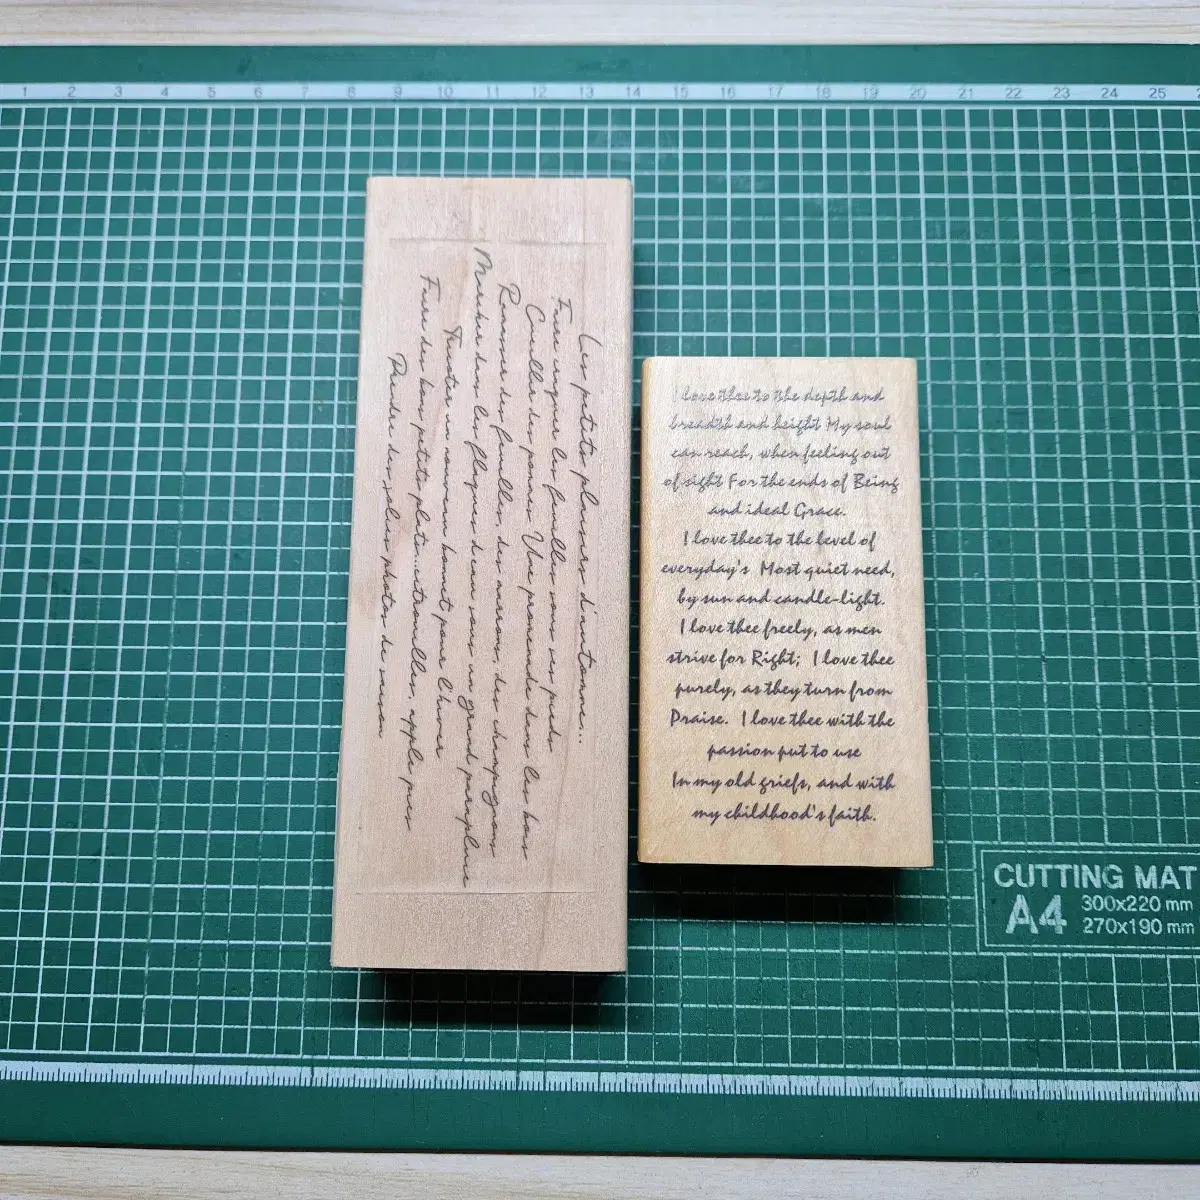 1 2 3 4 5 6 7 8 9 10 11 12 13 14 15 16 17 18 19 20 21 22 23 24 25
Les petits plaisirs d'automne...
Faire craquer les feuilles sous ses pieds
Cueillir des pommes Une promenade dans les bois
Ramasser des feuilles, des marrons, des champignons
Marcher dans les flaques d'eau sous un grand parapluie
Tricoter un nouveau bonnet pour l'hiver
Faire des bons petits plats... citrouilles, apple pies
Prendre des jolies photos de saison
I love thee to the depth and
breadth and height My soul
can reach, when feeling out
of sight For the ends of Being
and ideal Grace.
I love thee to the level of
everyday's Most quiet need,
by sun and candle-light.
I love thee freely, as men
strive for Right; I love thee
purely, as they turn from
Praise. I love thee with the
passion put to use
In my old griefs, and with
my childhood's faith.
CUTTING MAT
A4 300x220 mm
270x190 mm